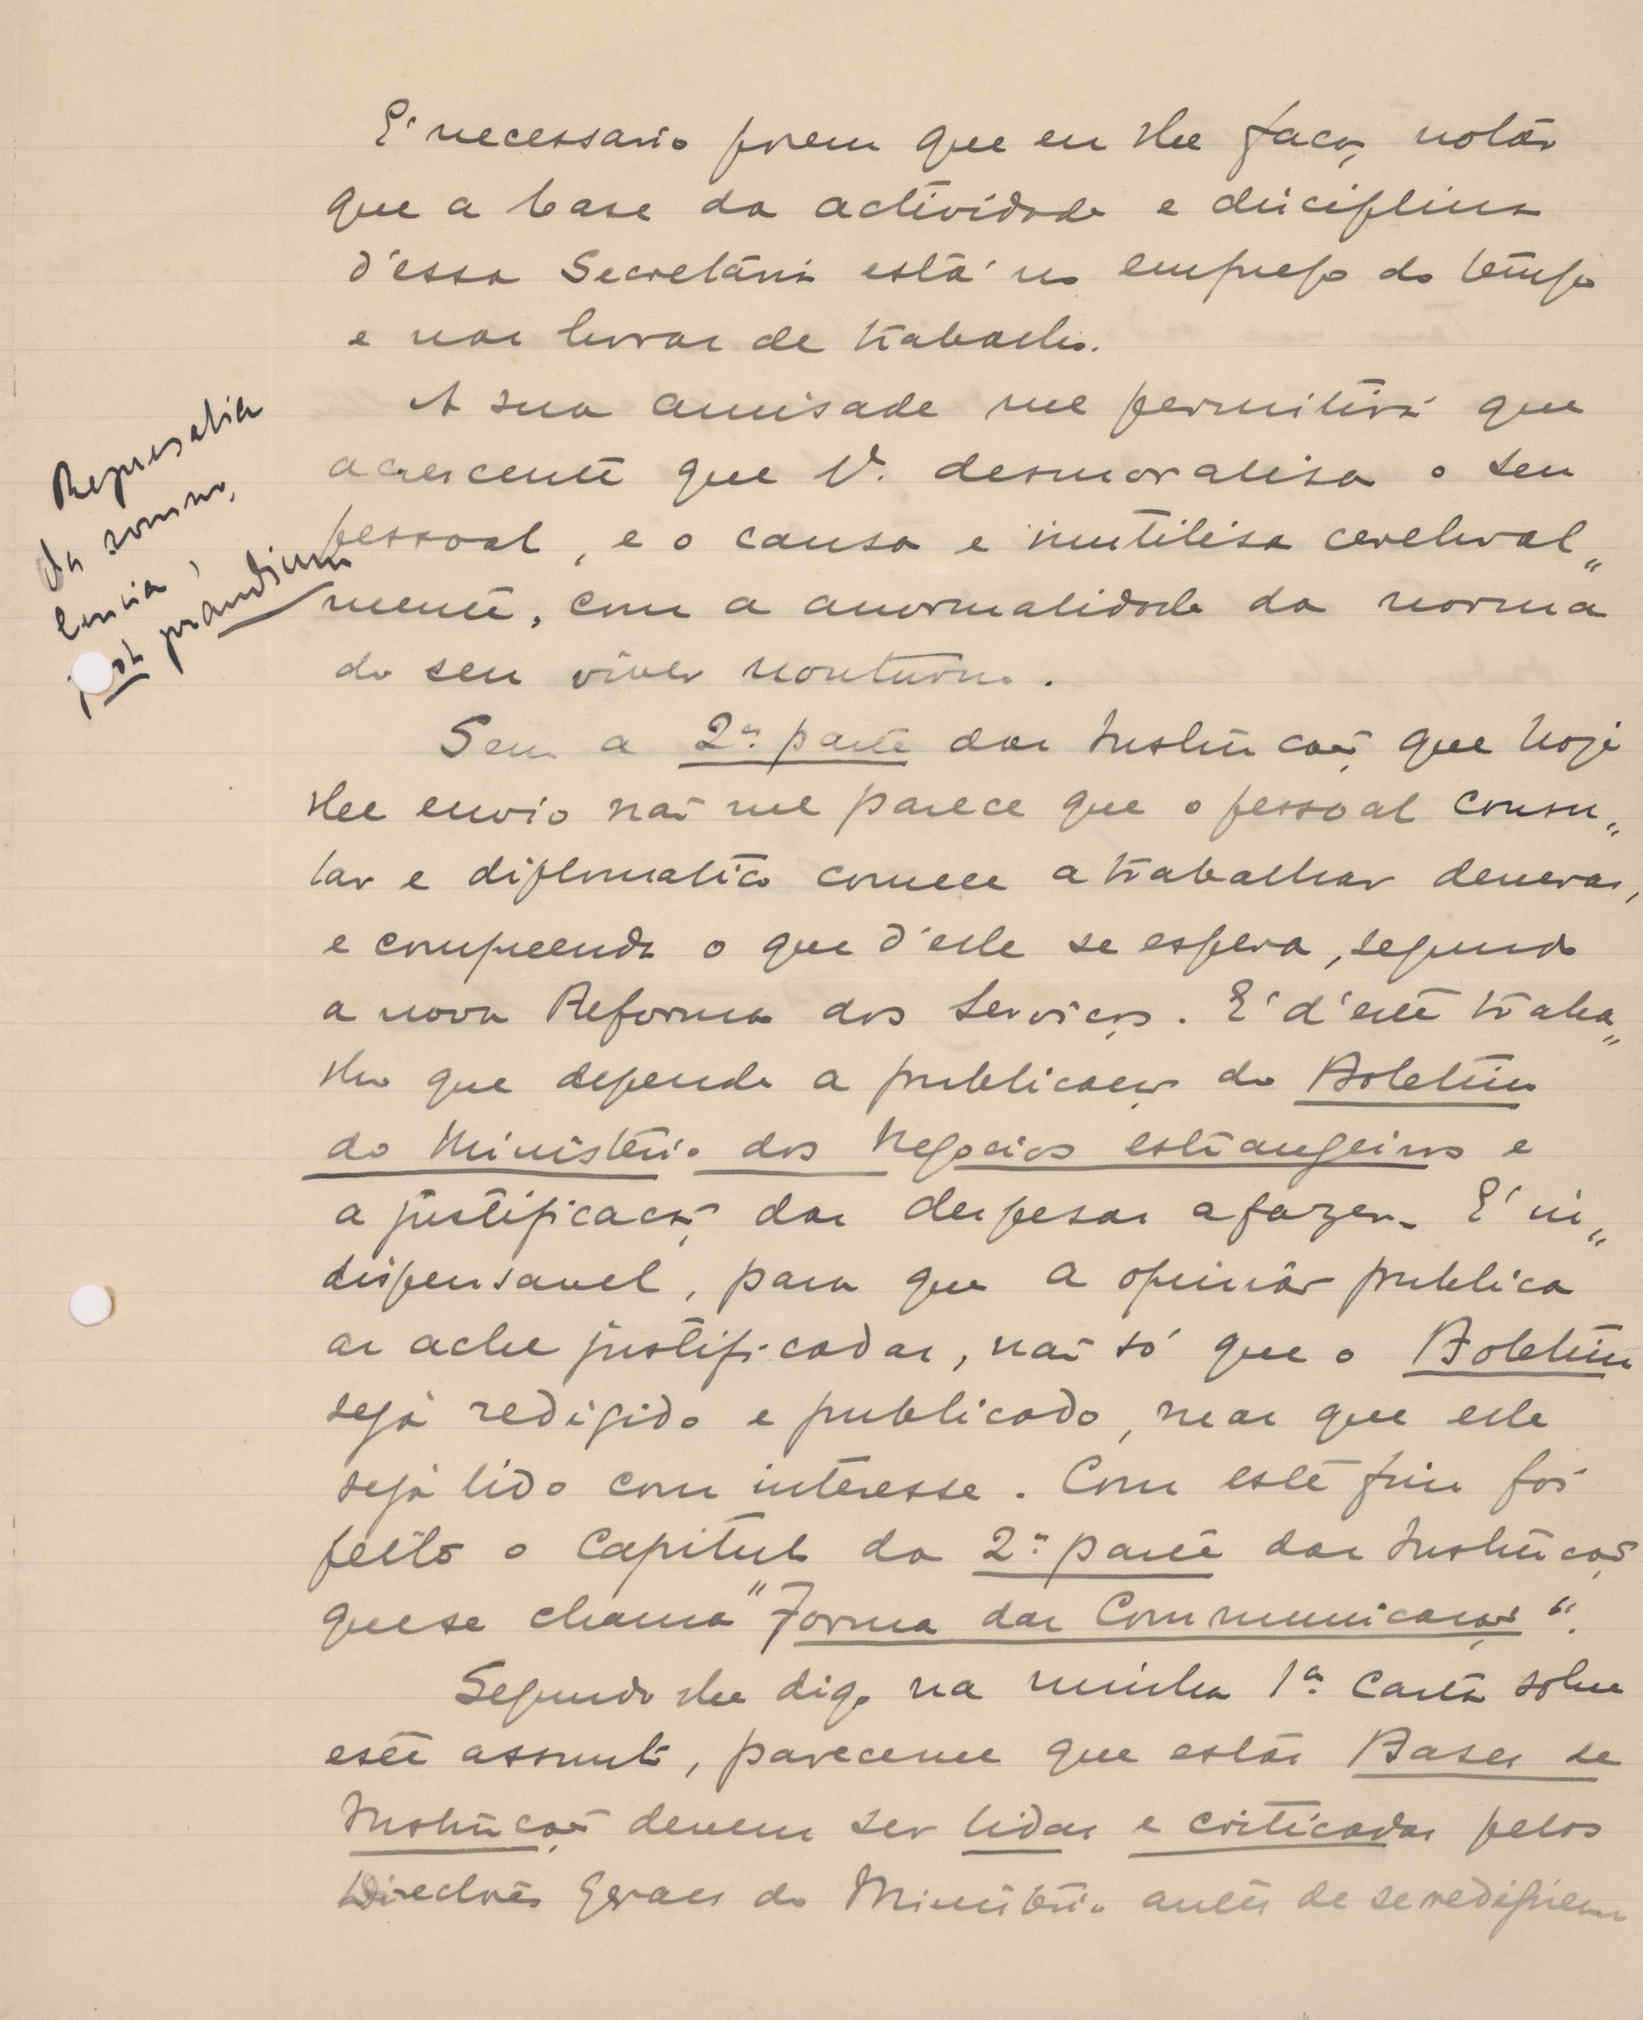 E' necessario porem que eu lhe faça notar
que a base da actividade e disciplina
d'essa Secretaria está no emprego do tempo
e nas horas de trabalho.
A sua amisade me permitirá que
acrescente que V. desmoralisa o seu
pessoal, e o cansa e inutilisa cerebral„
mente, com a anormalidade da norma
do seu viver nocturno.
Represalia
da somno,
lencia,
post prandium
Sem a 2ª parte das Instrucções que hoje
lhe envio não me parece que o pessoal consu„
lar e diplomatico comece a trabalhar deveras,
e comprehenda o que d'elle se espera, segundo
a nova Reforma dos Serviços. E' d'este traba„
lho que depende a publicação do Boletim
do Ministerio dos Negocios estrangeiros e
a justificação das despesas a fazer. E' in„
dispensavel, para que a opinião publica
as ache justificadas, não só que o Boletim
seja redigido e publicado, mas que elle
seja lido com interesse. Com este fim foi
feito o Capitulo da 2ª parte das Instrucções
que se chama "Forma das Communicações".
Segundo lhe digo na minha 1ª Carta sobre
este assumpto, pareceme que estas Bases de
Instrucções devem ser lidas e criticadas pelos
Directores Geraes do Ministerio antes de se redigirem